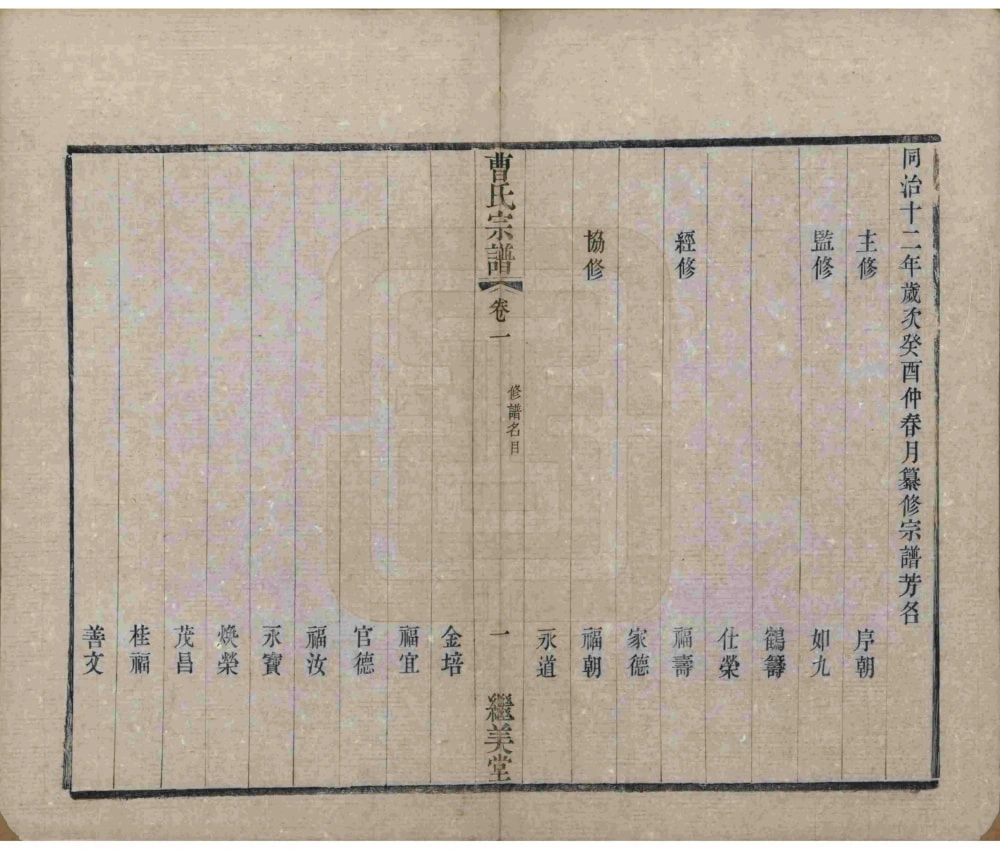 同治十二年歲次癸酉仲春月纂修宗譜芳名
主修 序朝
監修 如九
鶴籌
仕榮
經修 福壽
家德
協修 福朝
永道
曹氏宗譜 卷一 修譜名目 一 繼美堂
金培
福宜
官德
福汝
永寶
煥榮
茂昌
桂福
善文